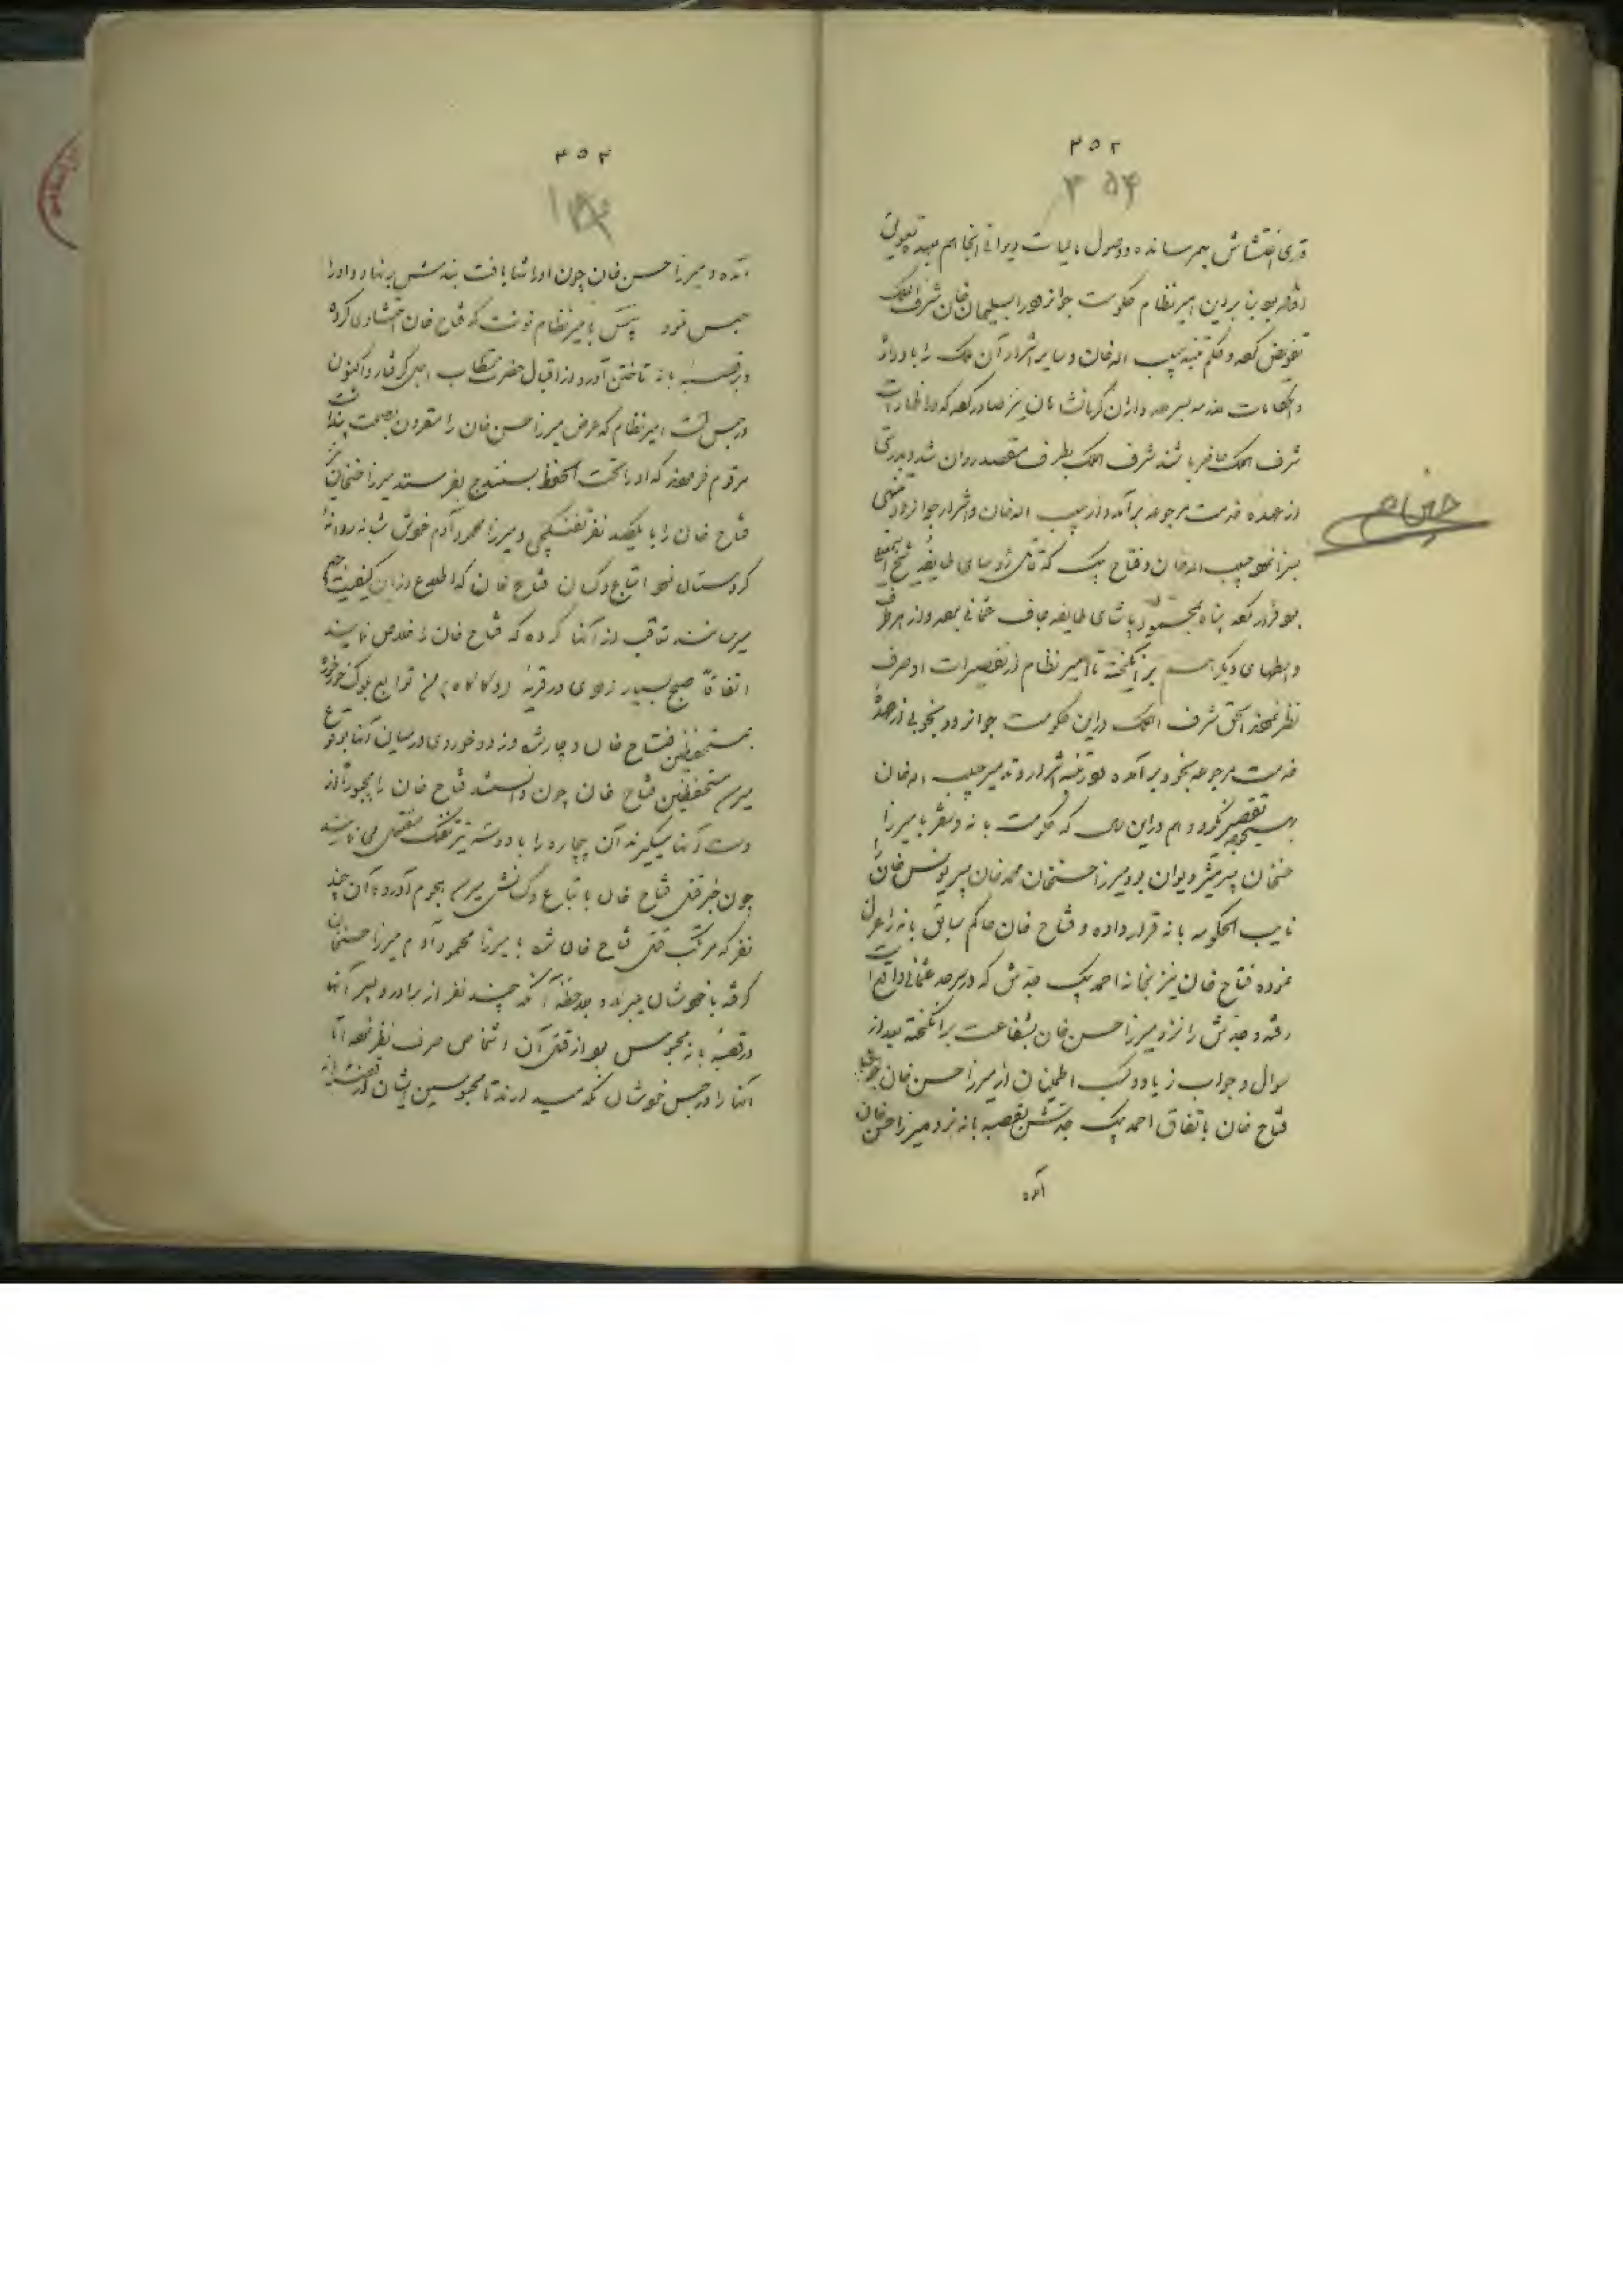 ۳۵۲
۳۵۴
قدری اغتشاش بهمرسانده و وصول مالیات دیوانی آنجا هم بعهده تعویق
بنابراین امیر نظام حکومت جوانرود را بسلیمان خان شرف الملک
تفویض کرده و حکم تنبیه حبیب اله خان و سایر اشرار آن ملک را باو داد
و بسرحدداران کرمانشاهان نیز صادر کرده که در اظهارات
شرف الملک حاضر باشند شرف الملک بطرف مقصد روان شد و بدرستی
از عهده خدمت مرجوعه برآمده و از حبیب اله خان و اشرار جوانرود
حبیب اله خان و فتاح بیک که قاتل رؤسای طایفه
فرار کرده پناه بمحمود پاشای طایفه جاف عثمانی برده و از هر طرف
واسطهای دیگر هم برانگیخته تا امیر نظام از تقصیرات او صرف
نظر نموده الحق شرف الملک در این حکومت جوانرود بخوبی از عهده
خدمت مرجوعه بخود برآمده و در تنبیه اشرار و تدمیر حبیب اله خان
بهیچوجه تقصیر نکرد و هم در این سال که حکومت بانه و سقز با میرزا
حسنخان پسر مشیر دیوان بود میرزا حسنخان محمد خان پسر یونس خان
نایب الحکومه بانه قرار داده و فتاح خان حاکم سابق بانه را عزل
نموده فتاح خان نیز بخانه احمد بیک جدش که در سرحد عثمانی واقع است
رفته و جدش را نزد میرزا حسن خان بشفاعت برانگیخته بعد از
سوال و جواب زیاد و کسب اطمینان از میرزا حسن خان
فتاح خان باتفاق احمد بیک جدش بقصبه بانه نزد میرزا حسن خان
آمده
۳۵۳
آمده و میرزا حسن خان چون او را تنها یافت بند بنهاد و او را
حبس نمود پس بامیر نظام نوشت که فتاح خان کرده
و بر قصبه بانه تاختن آورد و از اقبال حضرت اجل گرفتار و اکنون
در حبس است امیر نظام که عرض میرزا حسن خان را مقرون بصحت پنداشت
مرقوم فرموده که او را تحت الحفظ بسنندج بفرستد میرزا حسنخان نیز
فتاح خان را با یکصد نفر تفنگچی و میرزا محمود آدم خودش شبانه روانه
کردستان نمود اتباع و کسان فتاح خان که اطلاع از این کیفیت
میرسانند تعاقب از آنها کرده که فتاح خان را خلاص نمایند
اتفاقاً صبح بسیار زودی در قریه من توابع بلوک خورخوره
بمستحفظین فتاح خان دچار شده و زد و خوردی در میان آنها بوقوع
میرسد مستحفظین فتاح خان چون دانستند فتاح خان را مجبوراً از
دست آنها میگیرند آن بیچاره را با دو سه تیر تفنگ مقتول می نمایند
چون خبر قتل فتاح خان باتباع و کسانش میرسد هجوم آورده آن چند
نفر که مرتکب قتل فتاح خان شده با میرزا محمود آدم میرزا حسنخان
گرفته با خودشان میبرند و بملاحظه آنکه چند نفر از برادر و پسر آنها
در قصبه بانه محبوس بود از قتل آن اشخاص صرف نظر نموده اما
آنها را در حبس خودشان نگه میدارند تا محبوسین ایشان از